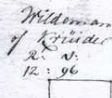 Wildeman
of Krüider
2: v:
12: 96